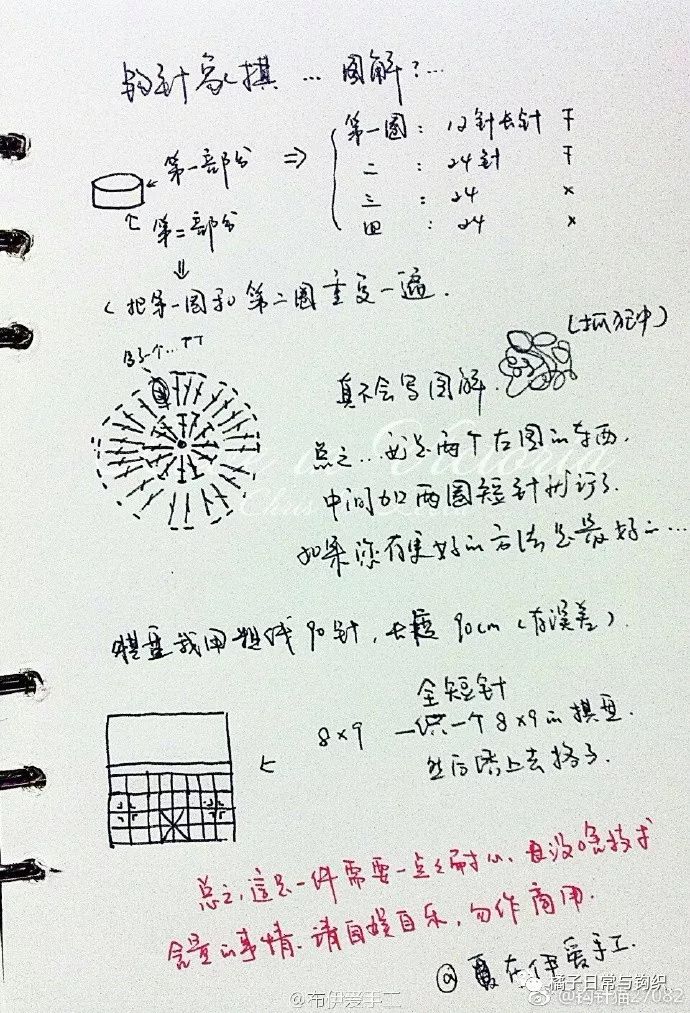 钩针象棋 … 图解?…
第一圈: 12针长针 T
二 : 24针 T
三 : 24 x
四 : 24 x
第一部分 ⇒
第二部分
⇓
(把第一圈和第二圈重复一遍.
(抓狂中)
真不会写图解.
总之…就是两个左图的东西.
中间加两圈短针就行了.
如果你有更好的方法是最好的…
棋盘我用粗线90针, 90cm (有误差).
全短针
8×9 一共一个8×9的棋盘.
然后 上去格子.
总之,這是一件需要一点点耐心、且没啥技术
含量的事情.请自娱自乐,勿作商用.
@夏在伊爱手工
橘子日常与钩织
@布伊爱手工
@钩针猫27082